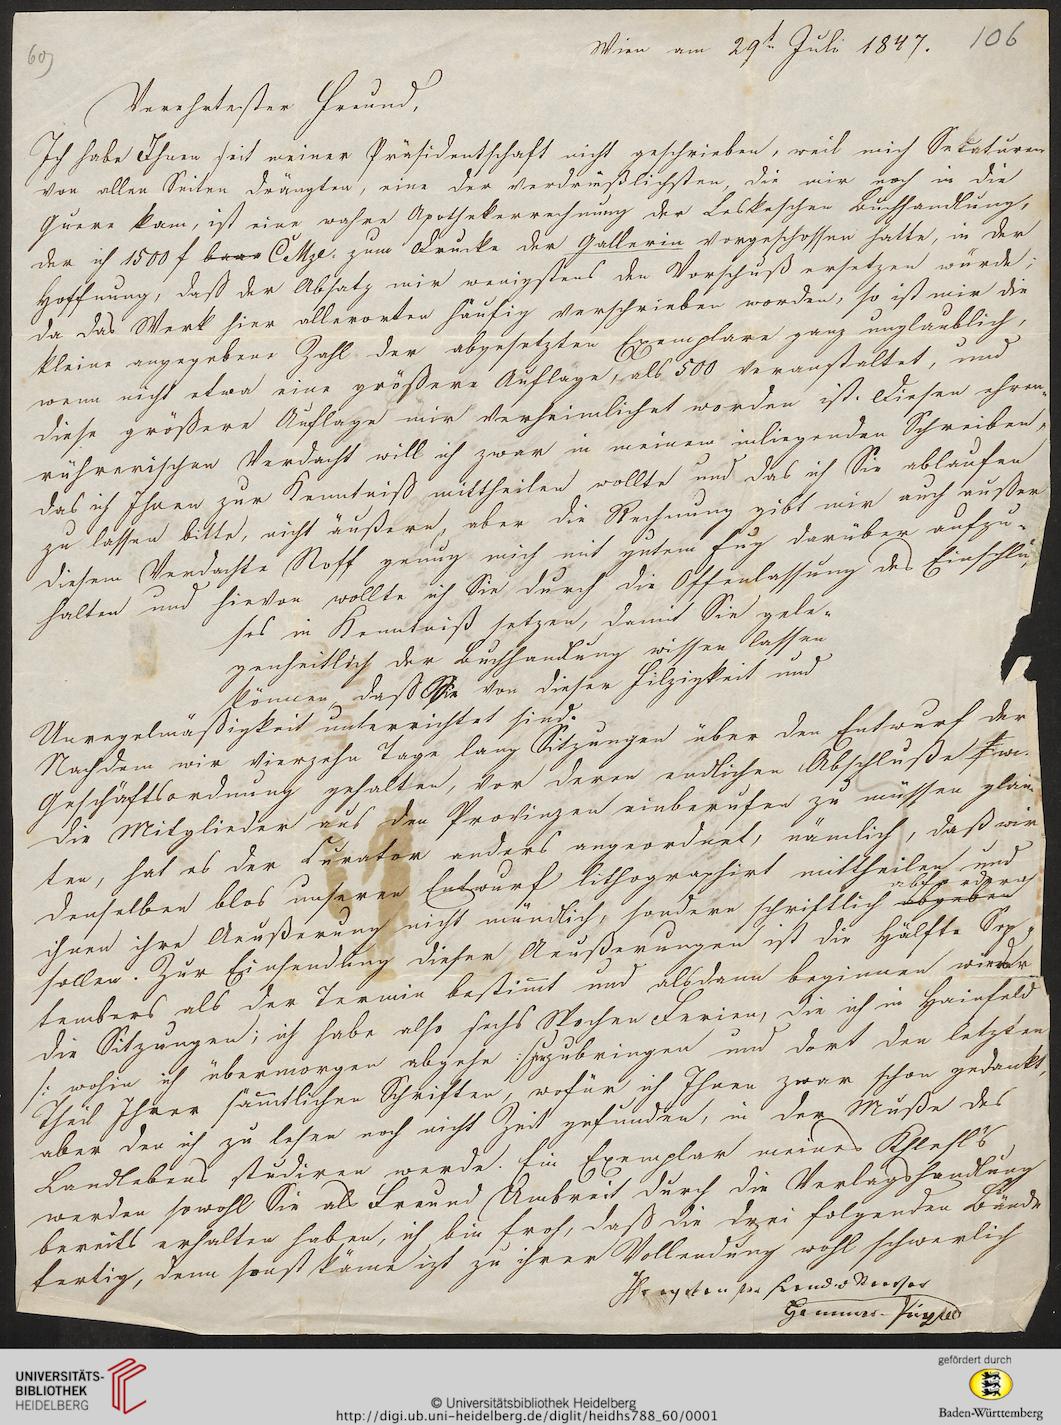 60)
106
Wien am 29t Juli 1847.
Verehrtester Freund,
Ich habe Ihnen seit meiner Präsidentschaft nicht geschrieben, weil mich Sekaturen
von allen Seiten drängten, eine der verdrüßlichsten, die mir noch in die
Quere kam, ist eine wahre Apothekerrechnung der Leskeschen Buchhandlung,
der ich 1500 f baar CMze. zum Drucke der Gallerin vorgeschossen hatte, in der
Hoffnung, daß der Absatz mir wenigstens den Vorschuß ersetzen würde;
da das Werk hier allerorten häufig verschrieben worden, so ist mir die
kleine angegebene Zahl der abgesetzten Exemplare ganz unglaublich,
wenn nicht etwa eine größere Auflage, als 500 veranstaltet, und
diese größere Auflage mir verheimlichet worden ist. Diesen ehren-
rührerischen Verdacht will ich zwar in meinem inliegenden Schreiben,
das ich Ihnen zur Kenntniß mittheilen wollte und das ich Sie ablaufen
zu lassen bitte, nicht äußern, aber die Rechnung gibt mir auch außer
diesem Verdachte Stoff genug mich mit gutem Fug darüber aufzu-
halten und hievon wollte ich Sie durch die Offenlassung des Einschlu-
ses in Kenntniß setzen, damit Sie gele-
genheitlich der Buchhandlung wissen lassen
können, daß Sie von dieser Filzigkeit und
Unregelmäßigkeit unterrichtet sind.
Nachdem wir vierzehn Tage lang Sitzungen über den Entwurf der
Geschäftsordnung gehalten, vor deren endlichen Abschluße wir
die Mitglieder aus den Provinzen einberufen zu müssen glaub-
ten, hat es der Curator anders angeordnet, nämlich, daß wir
denselben blos unseren Entwurf lithographirt mittheilen und
ihnen ihre Aeußerung nicht mündlich, sondern schriftlich abgeben abfodern
sollen. Zur Einsendung dieser Aeußerungen ist die Hälfte Sep-
tembers als der Termin bestimt und alsdann beginnen wieder
die Sitzungen; ich habe also sechs Wochen Ferien, die ich in Hainfeld
/: wohin ich übermorgen abgehe :/ zuzubringen und dort den letzten
Theil Ihrer sämtlichen Schriften, wofür ich Ihnen zwar schon gedankt,
aber den ich zu lesen noch nicht Zeit gefunden, in der Muße des
Landlebens studiren werde. Ein Exemplar meines Khlesl's
werden sowohl Sie als Freund Umbreit durch die Verlagshandlung
bereits erhalten haben, ich bin froh, daß die drei folgenden Bände
fertig, denn sonst käme izt zu ihrer Vollendung wohl schwerlich
Ihr ergebenster Freund u Verehrer
Hammer-Purgstall
UNIVERSITÄTS-
BIBLIOTHEK
HEIDELBERG
© Universitätsbibliothek Heidelberg
http://digi.ub.uni-heidelberg.de/diglit/heidhs788_60/0001
gefördert durch
Baden-Württemberg